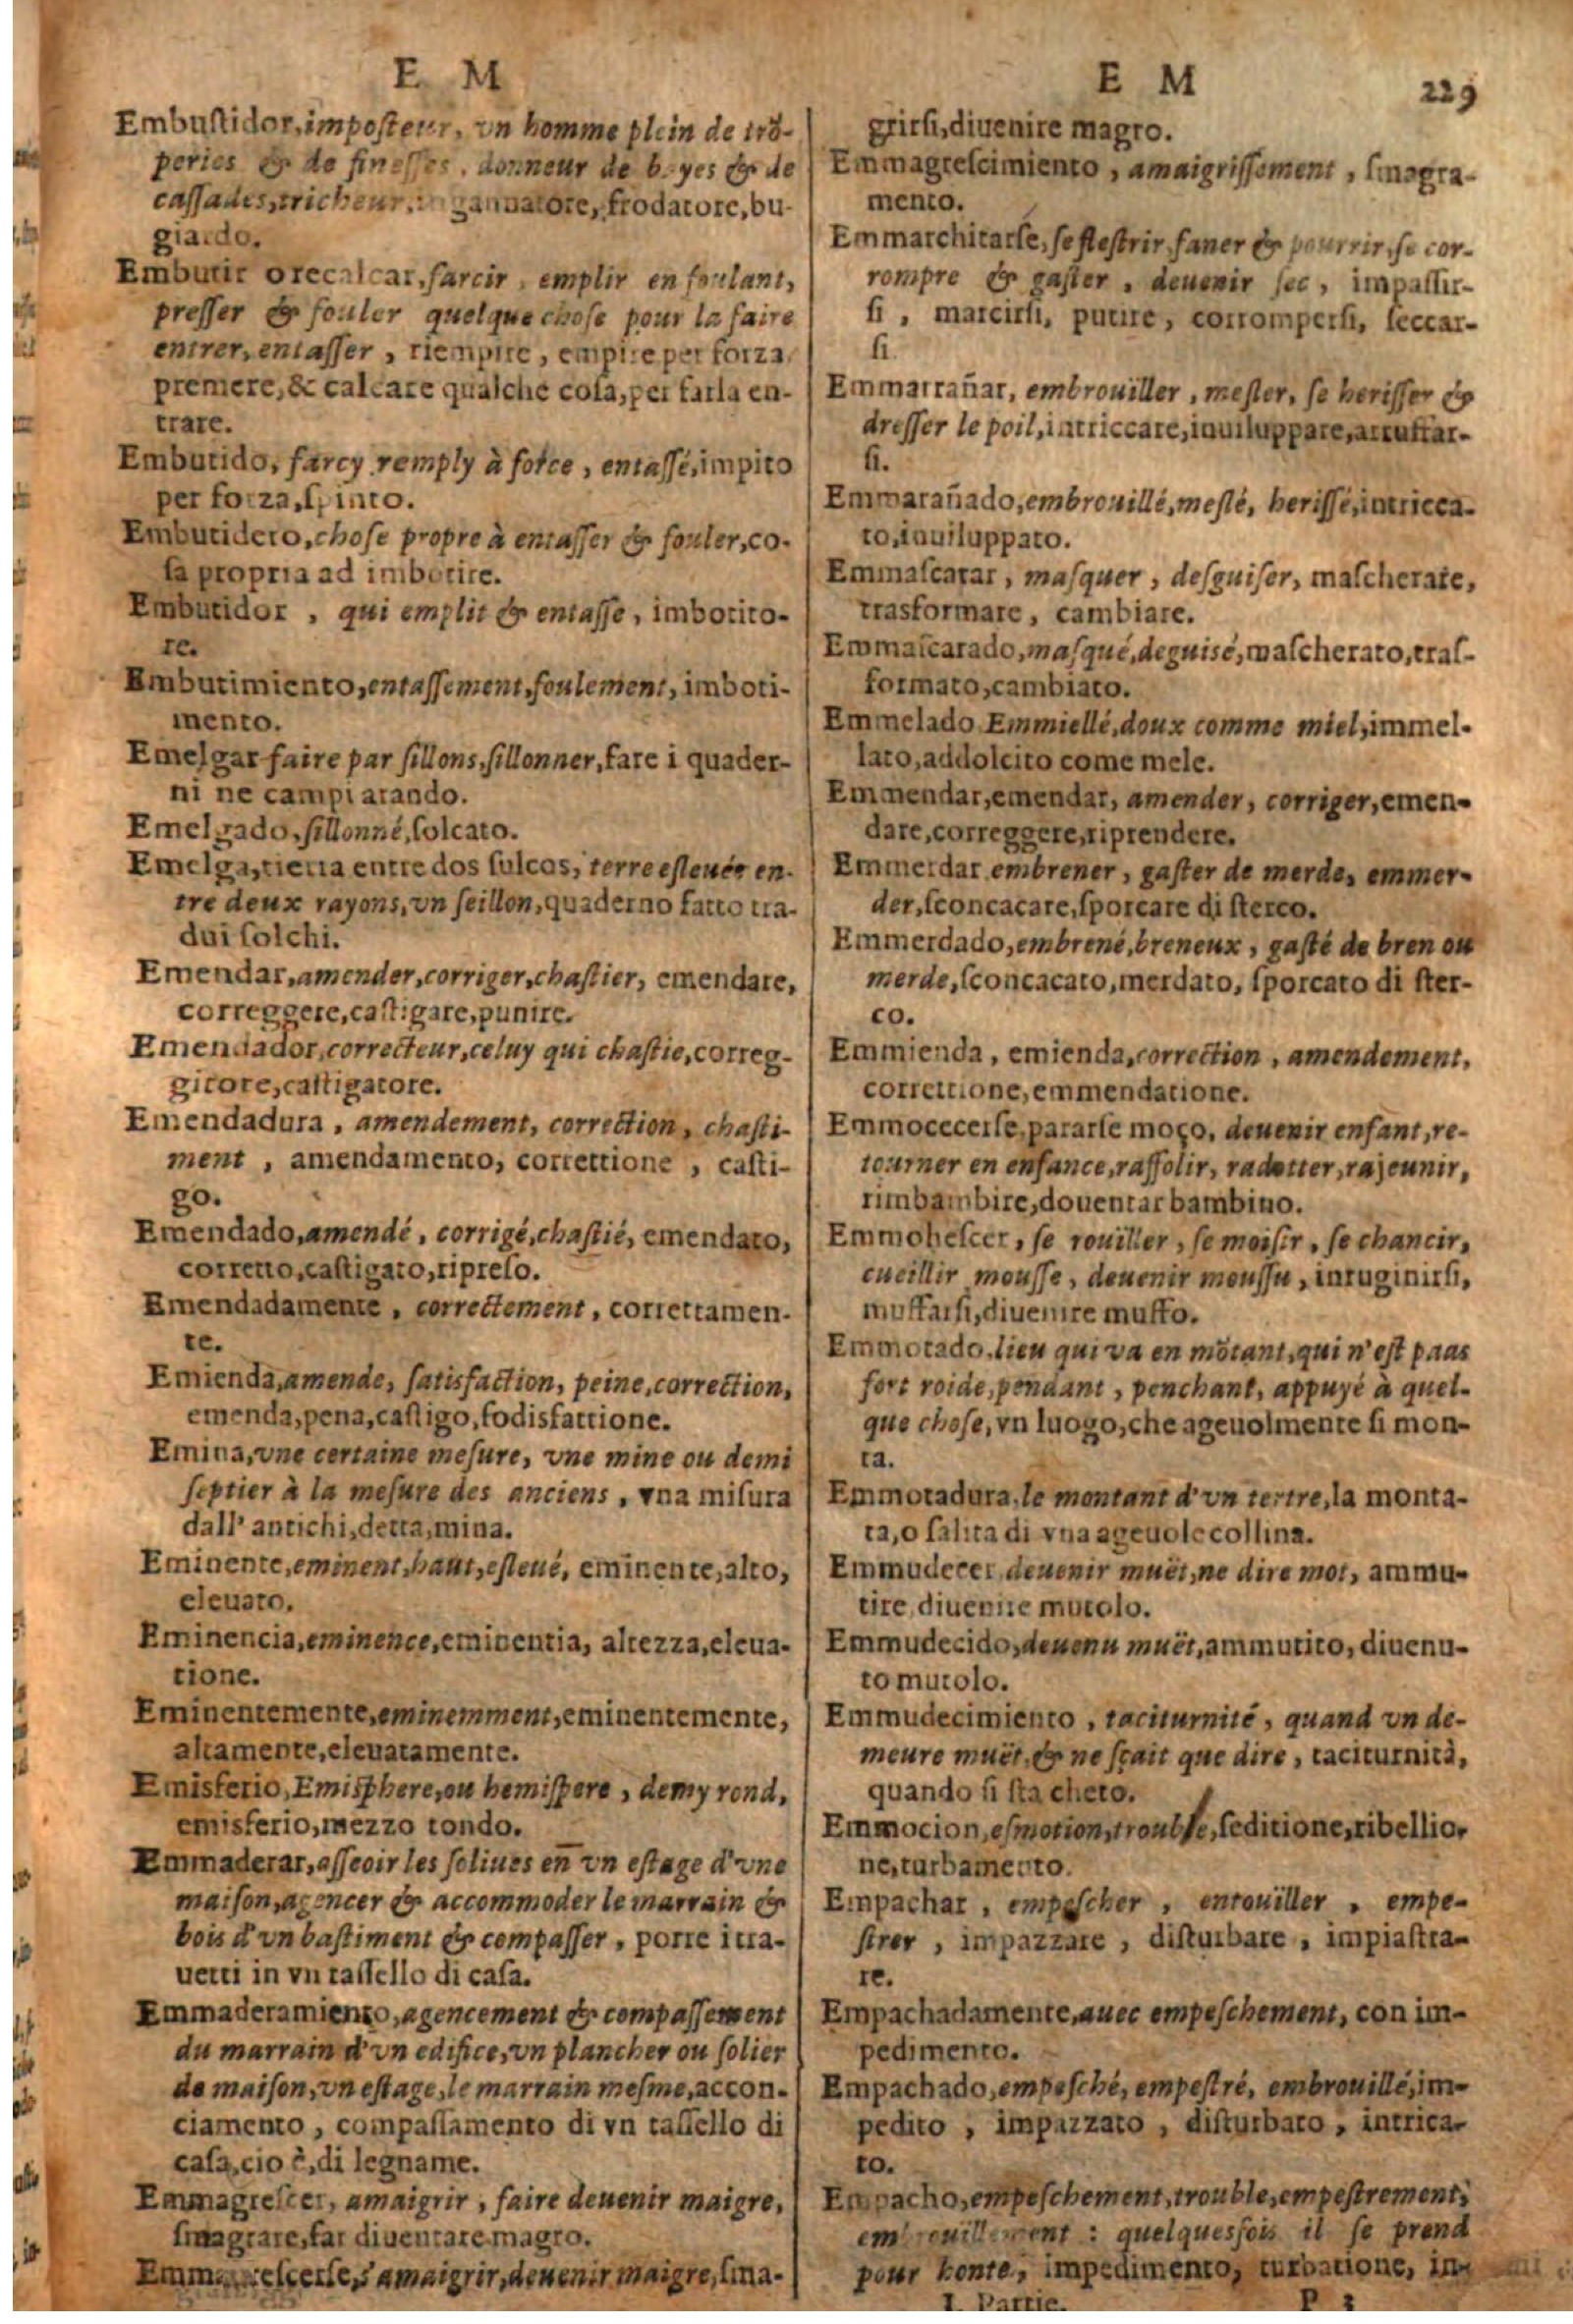 E M
Embustidor, imposteur, vn homme plein de trõ-
peries & de finesses, donneur de bayes & de
cassades, tricheur, ingannatore, frodatore, bu-
giardo.
Embutir o recalcar, farcir, emplir en foulant,
presser & fouler quelque chose pour la faire
entrer, entasser, riempire, empire per forza
premere, & calcare qualche cosa, per farla en-
trare.
Embutido, farcy remply à force, entassé, impito
per forza, spinto.
Embutidero, chose propre à entasser & fouler, co-
sa propria ad imbotire.
Embutidor, qui emplit & entasse, imbotito-
re.
Embutimiento, entassement, foulement, imboti-
mento.
Emelgar faire par sillons, sillonner, fare i quader-
ni ne campi arando.
Emelgado, sillonné, solcato.
Emelga, tierra entre dos sulcos, terre esleuée en-
tre deux rayons, vn seillon, quaderno fatto tra-
dui solchi.
Emendar, amender, corriger, chastier, emendare,
correggere, castigare, punire.
Emendador, correcteur, celuy qui chastie, correg-
gitore, castigatore.
Emendadura, amendement, correction, chasti-
ment, amendamento, correttione, casti-
go.
Emendado, amendé, corrigé, chastié, emendato,
corretto, castigato, ripreso.
Emendadamente, correctement, correttamen-
te.
Emienda, amende, satisfaction, peine, correction,
emenda, pena, castigo, sodisfattione.
Emina, vne certaine mesure, vne mine ou demi
septier à la mesure des anciens, vna misura
dall' antichi, detta, mina.
Eminente, eminent, haut, esleué, eminente, alto,
eleuato.
Eminencia, eminence, eminentia, altezza, eleua-
tione.
Eminentemente, eminemment, eminentemente,
altamente, eleuatamente.
Emisferio, Emisphere, ou hemispere, demy rond,
emisferio, mezzo tondo.
Emmaderar, asseoir les soliues en vn estage d'vne
maison, agencer & accommoder le marrain &
bois d'vn bastiment & compasser, porre i tra-
uetti in vn tassello di casa.
Emmaderamiento, agencement & compassement
du marrain d'vn edifice, vn plancher ou solier
de maison, vn estage, le marrain mesme, accon-
ciamento, compassamento di vn tassello di
casa, cio è, di legname.
Emmagrescer, amaigrir, faire deuenir maigre,
smagrare, far diuentare magro.
Emmagrescerse, s'amaigrir, deuenir maigre, sma-
E M
229
grirsi, diuenire magro.
Emmagrescimiento, amaigrissement, smagra-
mento.
Emmarchitarse, se flestrir, faner & pourrir, se cor-
rompre & gaster, deuenir sec, impassir-
si, marcirsi, putire, corrompersi, seccar-
si.
Emmarrañar, embrouiller, mesler, se herisser &
dresser le poil, intriccare, inuiluppare, arruffar-
si.
Emmarañado, embrouillé, meslé, herissé, intricca-
to, inuiluppato.
Emmascarar, masquer, desguiser, mascherare,
trasformare, cambiare.
Emmascarado, masqué, deguisé, mascherato, tras-
formato, cambiato.
Emmelado Emmiellé, doux comme miel, immel-
lato, addolcito come mele.
Emmendar, emendar, amender, corriger, emen-
dare, correggere, riprendere.
Emmerdar embrener, gaster de merde, emmer-
der, sconcacare, sporcare di sterco.
Emmerdado, embrené, breneux, gasté de bren ou
merde, sconcacato, merdato, sporcato di ster-
co.
Emmienda, emienda, correction, amendement,
correttione, emmendatione.
Emmocecerse, pararse moço, deuenir enfant, re-
tourner en enfance, raffolir, radotter, rajeunir,
rimbambire, douentar bambino.
Emmohescer, se rouiller, se moisir, se chancir,
cueillir mousse, deuenir moussu, inruginirsi,
muffarsi, diuenire muffo.
Emmotado, lieu qui va en mõtant, qui n'est paas
fort roide, pendant, penchant, appuyé à quel-
que chose, vn luogo, che ageuolmente si mon-
ta.
Emmotadura, le montant d'vn tertre, la monta-
ta, o salita di vna ageuole collina.
Emmudecer deuenir muët, ne dire mot, ammu-
tire, diuenire mutolo.
Emmudecido, deuenu muët, ammutito, diuenu-
to mutolo.
Emmudecimiento, taciturnité, quand vn de-
meure muët, & ne sçait que dire, taciturnità,
quando si sta cheto.
Emmocion, esmotion, trouble, seditione, ribellio-
ne, turbamento.
Empachar, empescher, entouiller, empe-
strer, impazzare, disturbare, impiastra-
re.
Empachadamente, auec empeschement, con im-
pedimento.
Empachado, empesché, empestré, embrouillé, im-
pedito, impazzato, disturbato, intrica-
to.
Empacho, empeschement, trouble, empestrement,
embrouillement : quelquesfois il se prend
pour honte, impedimento, turbatione, in-
I. Partie. P 3